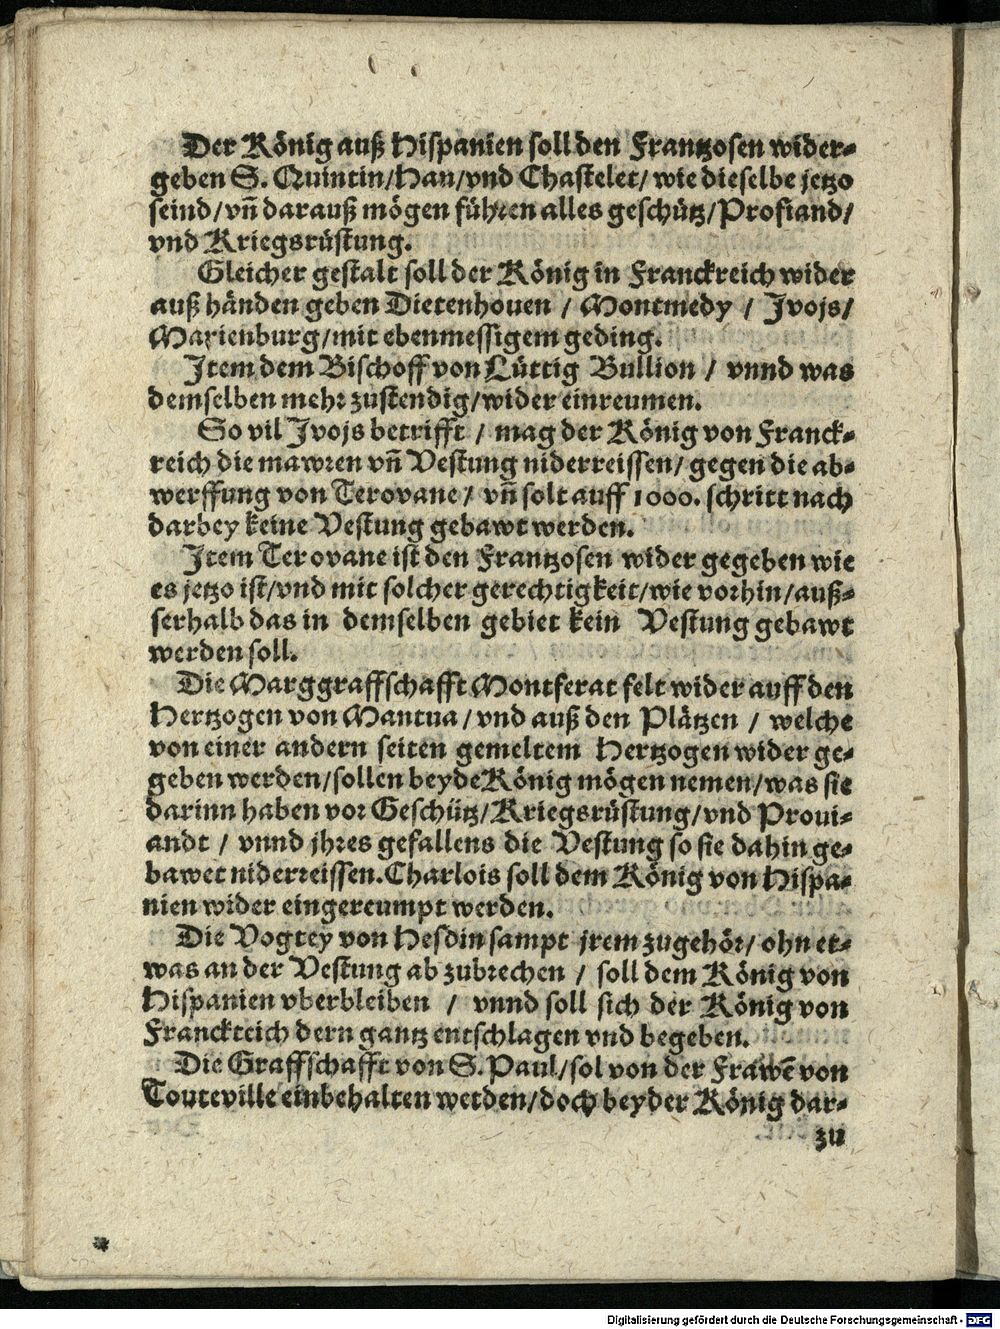 Der König auß Hispanien soll den Frantzosen wider-
geben S. Quintin/Han/vnd Chastelet/ wie dieselbe jetzo
seind/vñ darauß mögen führen alles geschütz/Profiand/
vnd Kriegsrüstung.
Gleicher gestalt soll der König in Franckreich wider
auß händen geben Dietenhouen / Montmedy / Jvojs/
Marienburg/mit ebenmessigem geding.
Jtem dem Bischoff von Lüttig Bullion / vnnd was
demselben mehr zustendig/wider einreumen.
So vil Jvojs betrifft / mag der König von Franck-
reich die mawren vñ Vestung niderreissen/ gegen die ab-
werffung von Terovane/ vñ solt auff 1000. schritt nach
darbey keine Vestung gebawt werden.
Jtem Terovane ist den Frantzosen wider gegeben wie
es jetzo ist/vnd mit solcher gerechtigkeit/wie vorhin/auß-
serhalb das in demselben gebiet kein Vestung gebawt
werden soll.
Die Marggraffschafft Montferat felt wider auff den
Hertzogen von Mantua/vnd auß den Plätzen / welche
von einer andern seiten gemeltem Hertzogen wider ge-
geben werden/sollen beyde König mögen nemen/was sie
darinn haben vor Geschütz/Kriegsrüstung/vnd Proui-
andt / vnnd jhres gefallens die Vestung so sie dahin ge-
bawet niderreissen. Charlois soll dem König von Hispa-
nien wider eingereumpt werden.
Die Vogtey von Hesdin sampt jrem zugehör/ ohn et-
was an der Vestung ab zubrechen / soll dem König von
Hispanien vberbleiben / vnnd soll sich der König von
Franckreich dern gantz entschlagen vnd begeben.
Die Graffschafft von S. Paul/sol von der Frawē von
Touteville einbehalten werden/doch beyder König dar-
zu
Digitalisierung gefördert durch die Deutsche Forschungsgemeinschaft - DFG